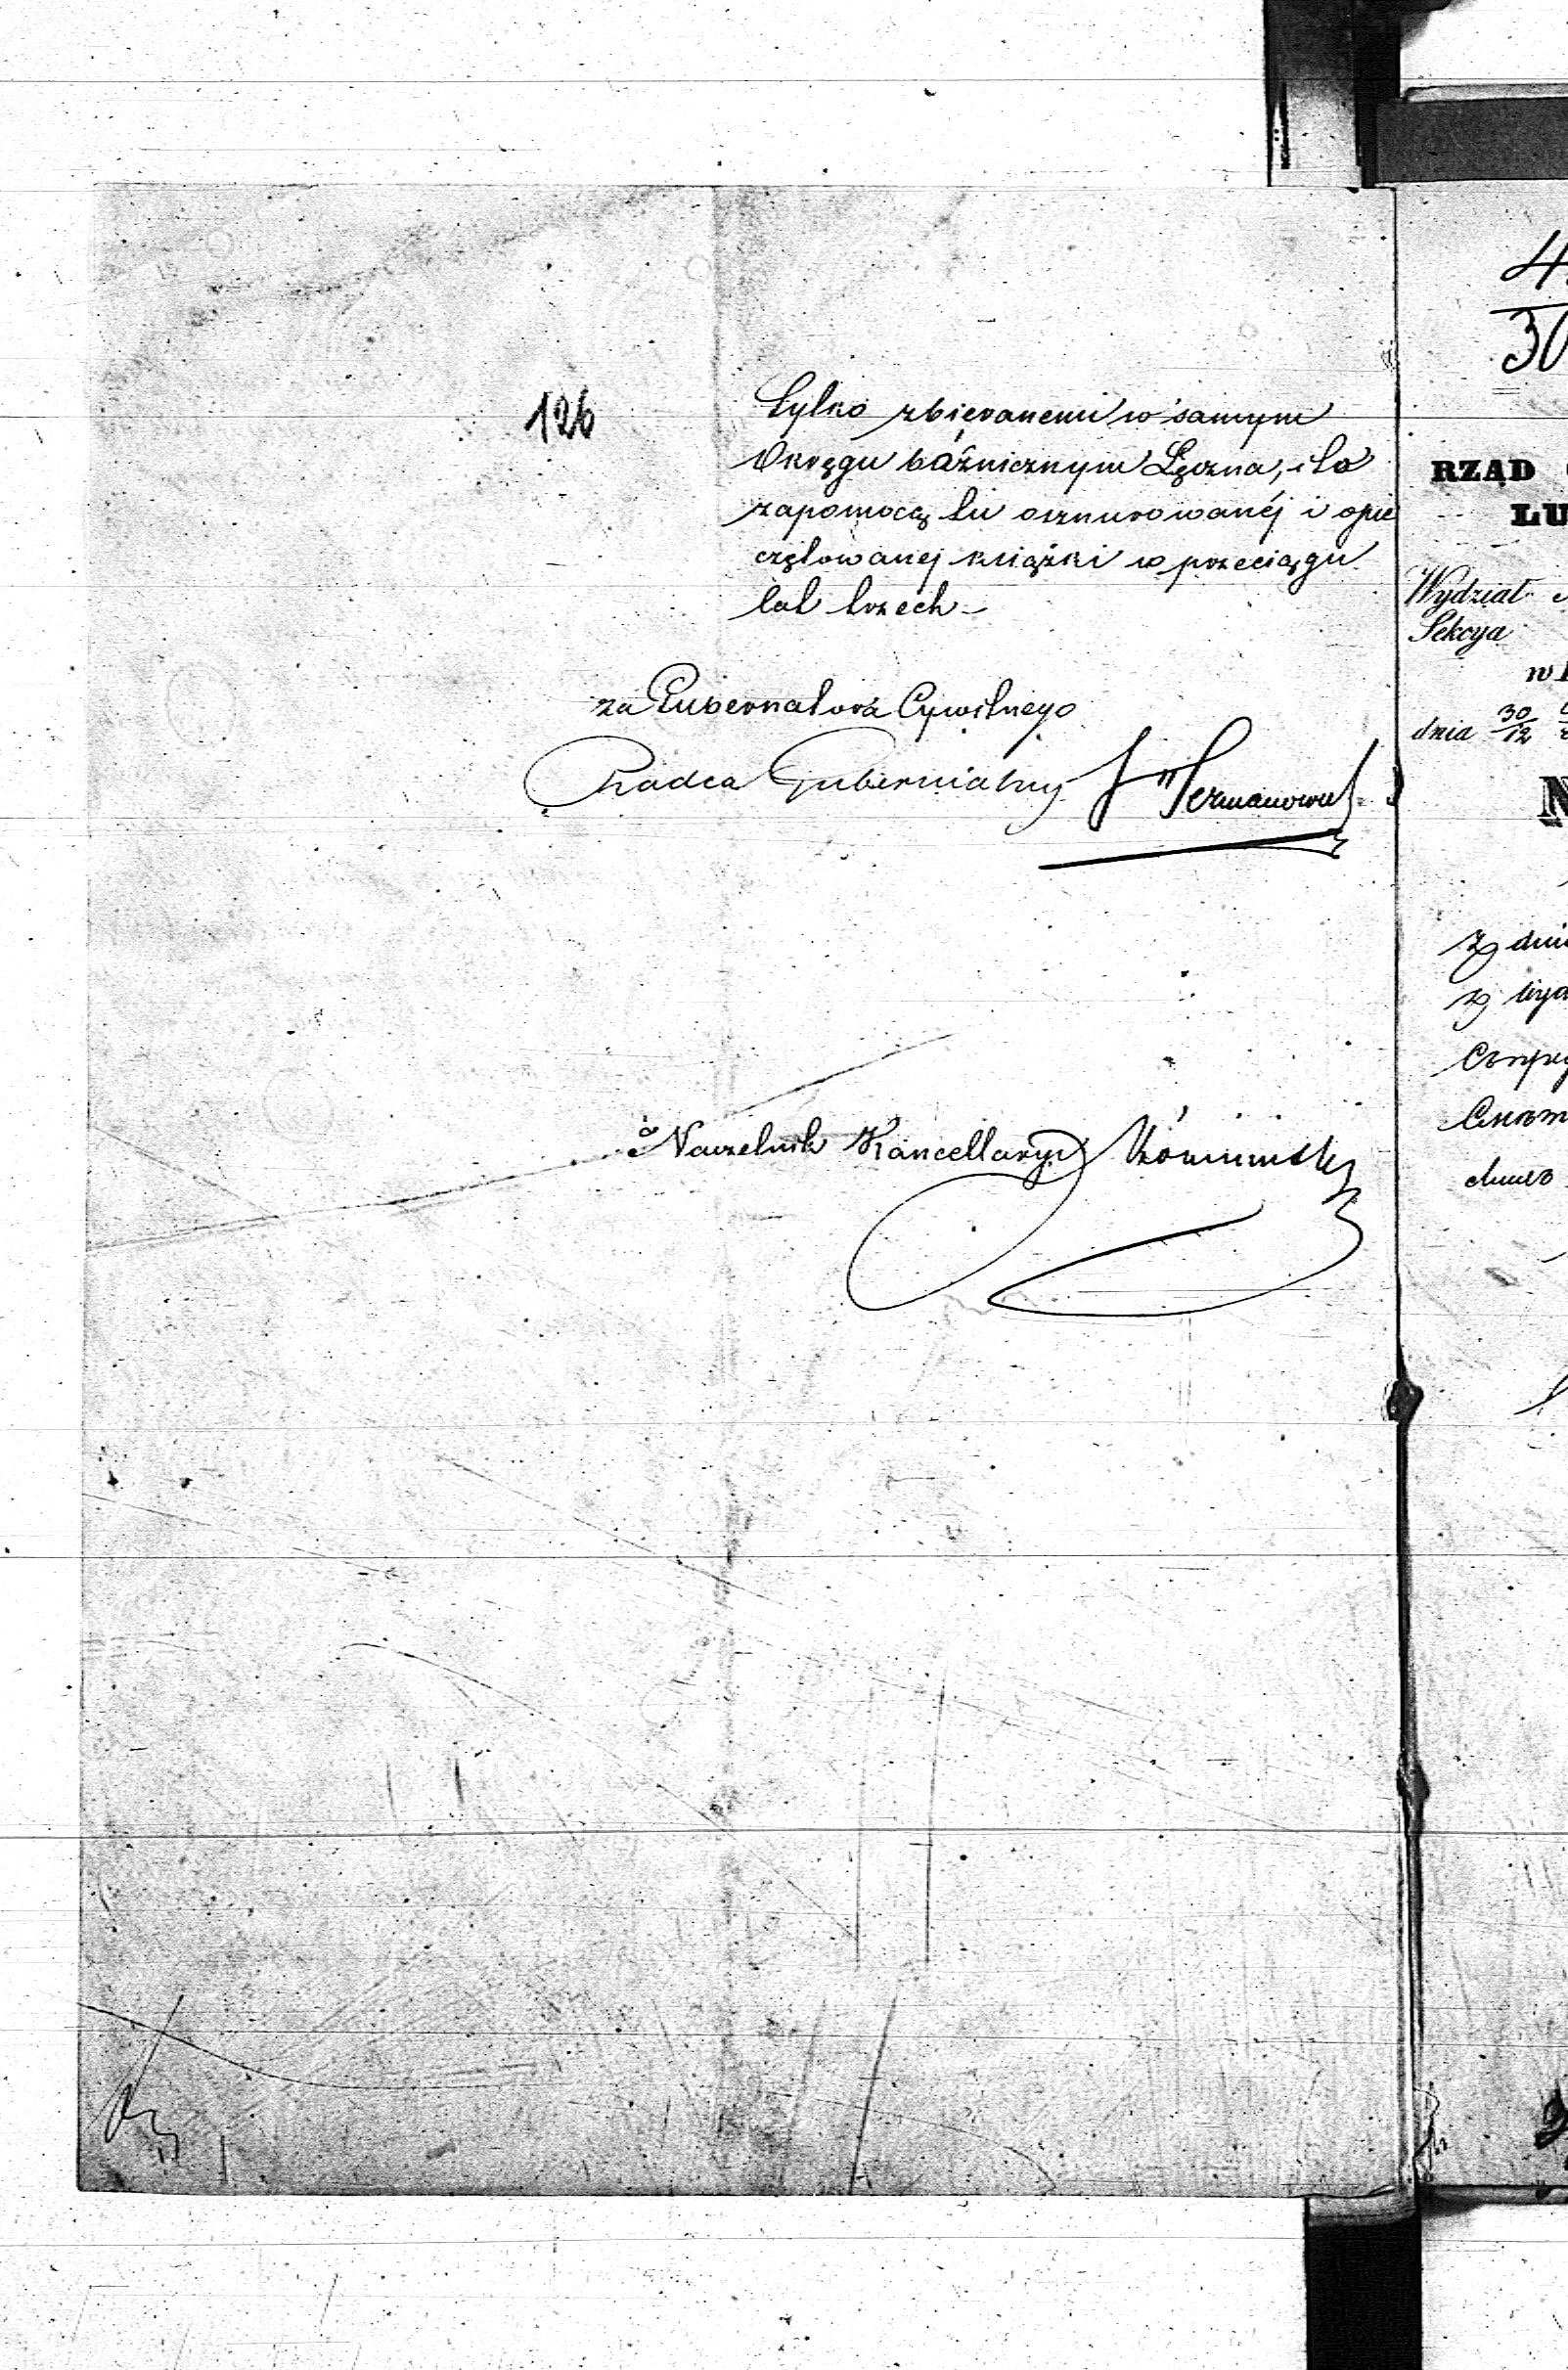 126
tylko zbieranemi w samym
Okręgu bóżnicznym Łęczna, i to
zapomocą tu osznurowanéj i opie
czętowanej książki w przeciągu
lat trzech –
za Gubernatora Cywilnego
Radca Gubernialny
Naczelnik Kancellaryi
30
RZĄD
LU
Wydział
Sekcya
w
dnia 30/12
N
z dnia
z